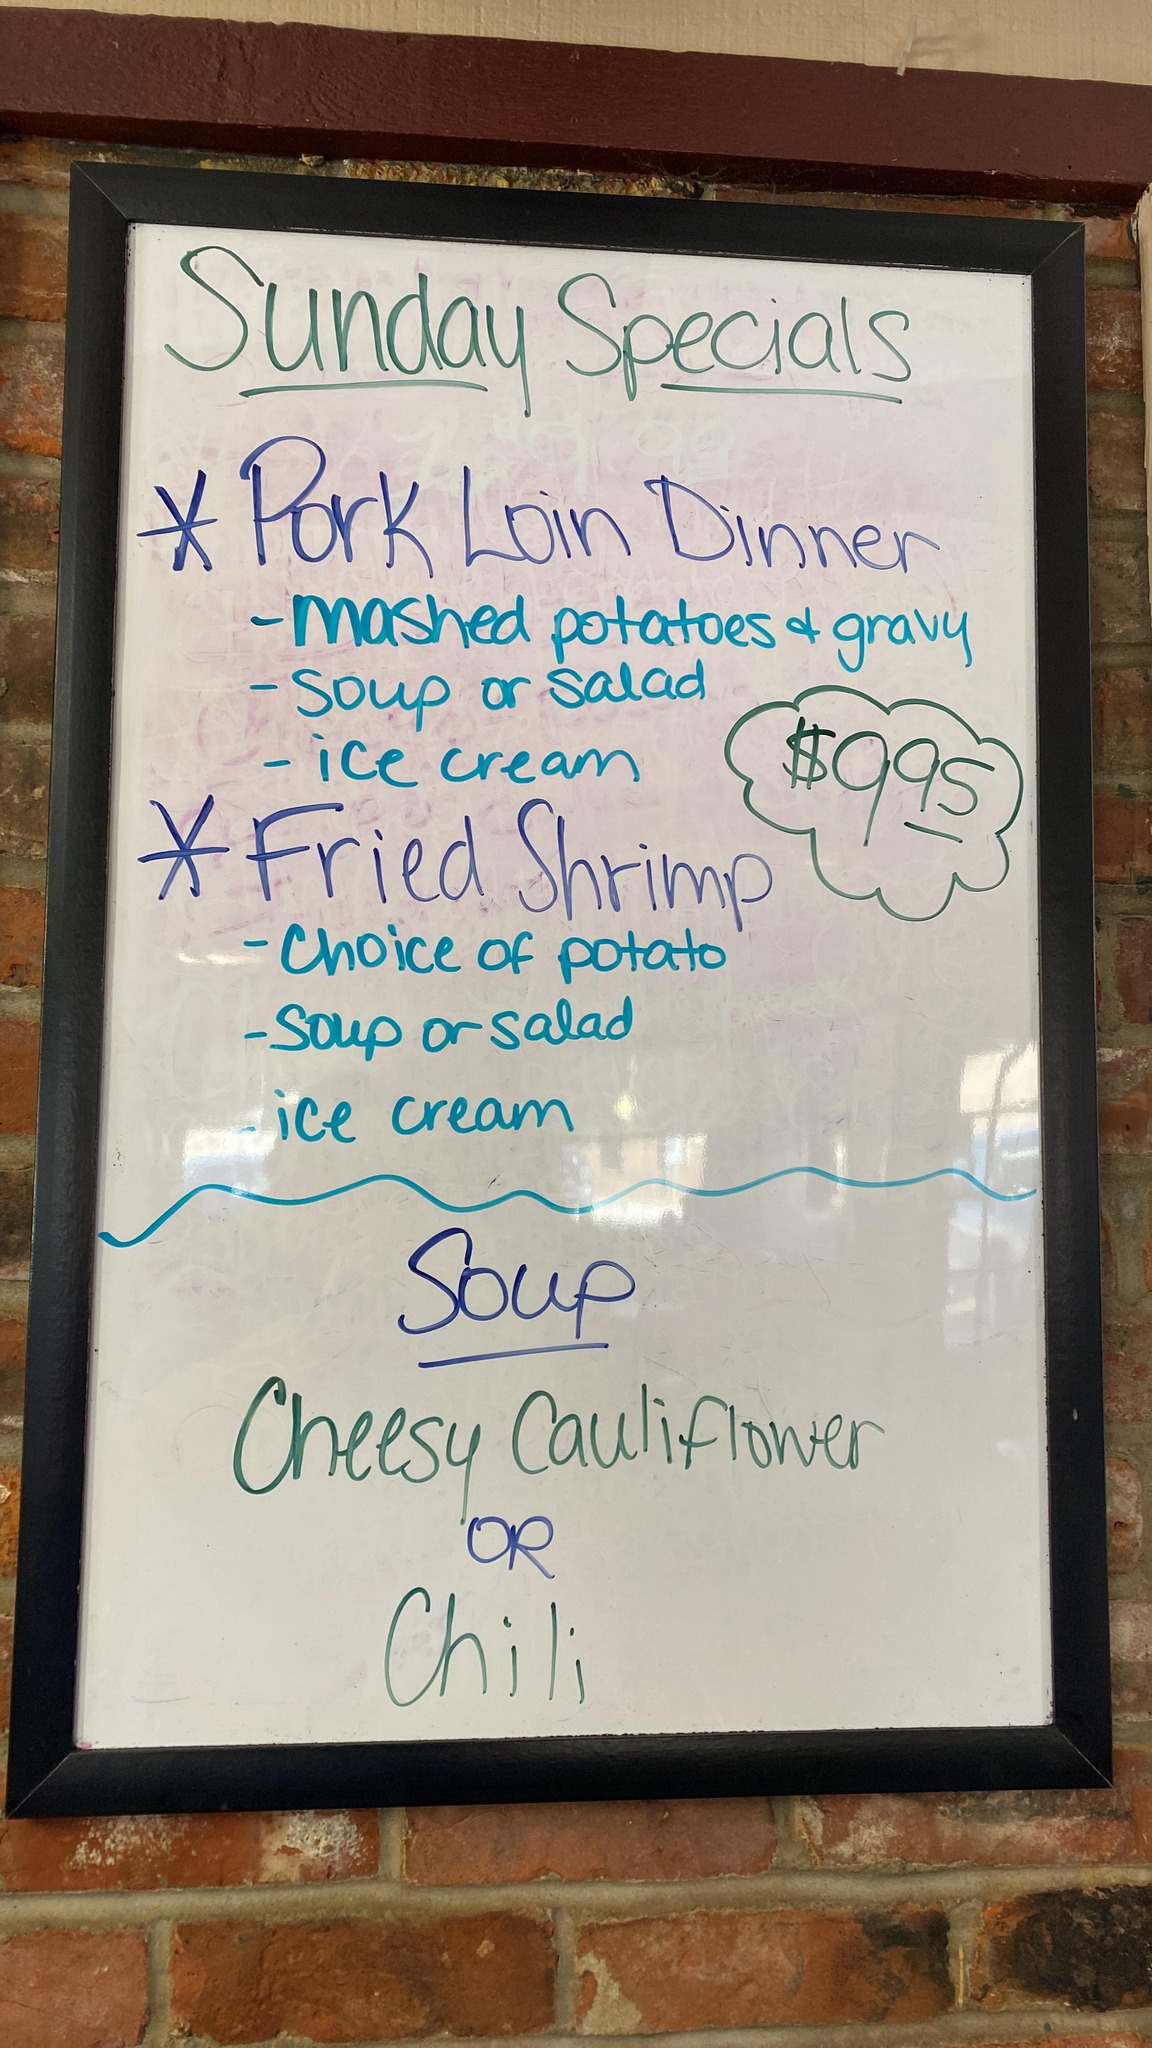 Sunday Specials
* Pork Loin Dinner
- mashed potatoes & gravy
- soup or salad
- ice cream
$995
* Fried Shrimp
- Choice of potato
- soup or salad
- ice cream
Soup
Cheesy Cauliflower
OR
Chili